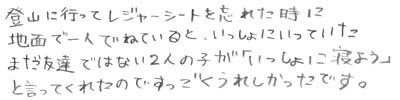 登山に行ってレジャーシートを忘れた時に
地面で一人でねていると、いっしょにいっていた
まだ友達ではない2人の子が「いっしょに寝よう」
と言ってくれたのですっごくうれしかったです。